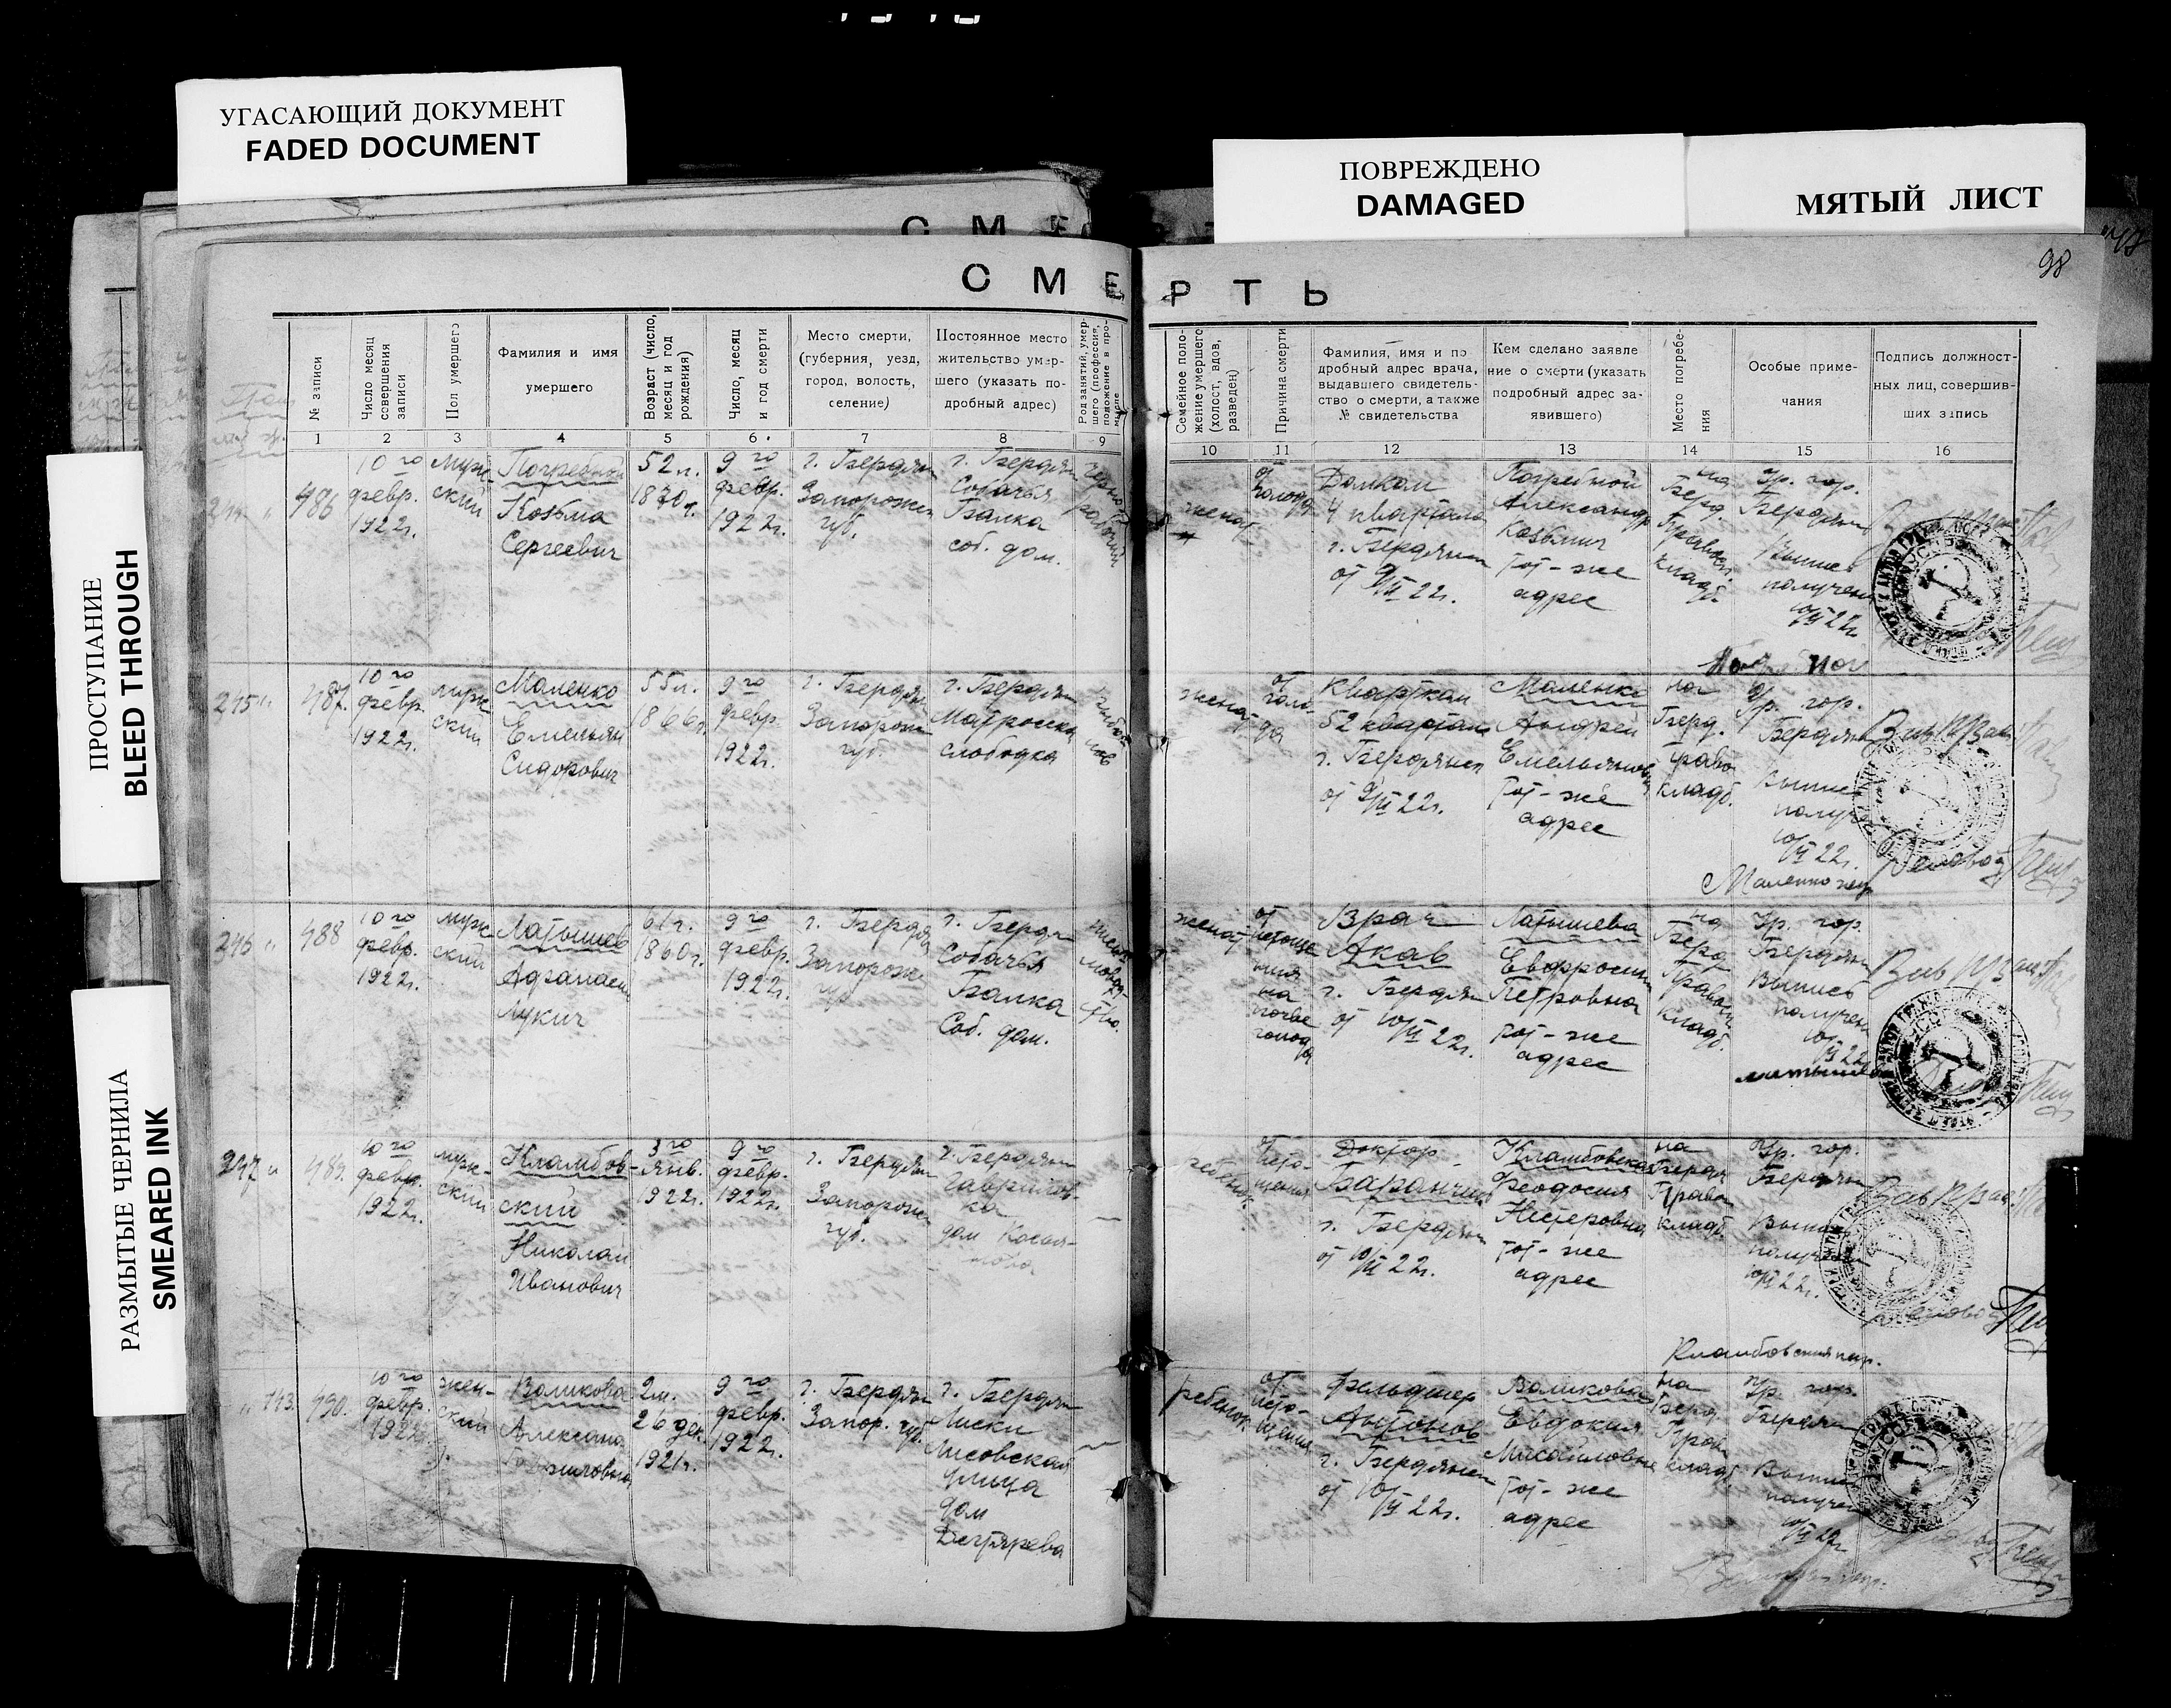 УГАСАЮЩИЙ ДОКУМЕНТ
FADED DOCUMENT
ПОВРЕЖДЕНО
DAMAGED
МЯТЫЙ ЛИСТ
ПРОСТУПАНИЕ
BLEED THROUGH
РАЗМЫТЫЕ ЧЕРНИЛА
SMEARED INK
98
СМЕРТЬ
№ записи
Число месяц
совершения
записи
Пол умершего
Фамилия и имя
умершего
Возраст (число,
месяц и год
рождения)
Число, месяц
и год смерти
Место смерти,
(губерния, уезд,
город, волость,
селение)
Постоянное место
жительство умер-
шего (указать по-
дробный адрес)
Род занятий, умер-
шего (профессия,
положение в про-
мысле
Семейное поло-
жение умершего
(холост, вдов,
разведен)
Причина смерти
Фамилия, имя и по
дробный адрес врача,
выдавшего свидетель-
ство о смерти, а также
№ свидетельства
Кем сделано заявле
ние о смерти (указать
подробный адрес за-
явившего)
Место погребе-
ния
Особые приме-
чания
Подпись должност-
ных лиц, совершив-
ших запись
1 2 3 4 5 6 7 8 9 10 11 12 13 14 15 16
486
10го
февр.
1922г.
муж-
ский
Погребной
Козьма
Сергеевич
52 л.
1870г.
9го
февр.
1922г.
г. Бердян
Запорожск
губ.
г. Бердян
Собачья
Балка
соб. дом.
женат
от
голода
Домком
4 квартала
г. Бердянск
от 9/II 22г.
Погребной
Александр
Козьмич
тот-же
адрес
на
Берд.
Правосл.
кладб.
Гр. гор.
Бердянск
Выпись
получена
10/II 22г.
245
487.
10го
февр.
1922г.
муж-
ский
Маленко
Емельян
Сидорович
55л.
1866г.
9го
февр.
1922г.
г. Бердян
Запорож
губ.
г. Бердян
Матросская
слободка
женат
от
голо-
да
Квартком
52 квартала
г. Бердянска
от 9/II 22г.
Маленко
Андрей
Емельянов
тот-же
адрес
на
Берд.
Право
кладб.
Гр. гор.
Бердянск
Выпись
получена
10/II 22г.
246
488
10го
февр.
1922г.
муж-
ский
Латышев
Афанасий
Лукич
61г.
1860г.
9го
февр.
1922г.
г. Бердян
Запорож
губ
г. Бердян
Собачья
Балка
Соб. дом.
женат
от
истоще
ния
на
почве
голода
Врач
Акав
г. Бердян
от 10/II 22г.
Латышева
Евфросин
Петровна
тот-же
адрес
на
Берд
Право
кладб.
Гр. гор.
Бердян
Выпись
получена
10/II 22
247
489.
10го
февр.
1922г.
муж-
ский
Кламбов-
ский
Николай
Иванович
3го
янв.
1922г.
9го
февр.
1922г.
г. Бердян
Запорожск
губ.
г. Бердян
Гаврилов-
ка
дом
ребенок
от
исто-
щения
Доктор
г. Бердян
от 10/II 22г.
Кламбовская
Феодосия
Нестеровна
тот-же
адрес
на
Бердя
Право
кладб.
Гр. гор.
Бердян
Выпись
получена
10/II 22г.
143.
490.
10го
февр.
1922
жен-
ский
Воликова
2м.
26 дек.
1921г.
9го
февр.
1922г.
г. Бердян
Запор. губ.
г. Бердян
Лиски
Лисовская
улица
дом
Дегтярева
ребенок
от
исто-
щения
Фельдшер
Антонов
г. Бердянск
от 10/II 22г.
Воликова
Евдокия
Михайловна
тот-же
адрес
на
Берд
Прав
кладб
Гр. гор.
Бердян
Выпись
получена
10/II 22г.